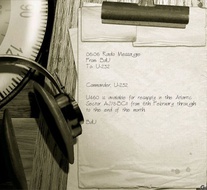 Radio Message
From: BdU
To: U-232
Commander U-232
is available for resupply in the Atlantic
from 6th February through
to the end of the month.
BdU